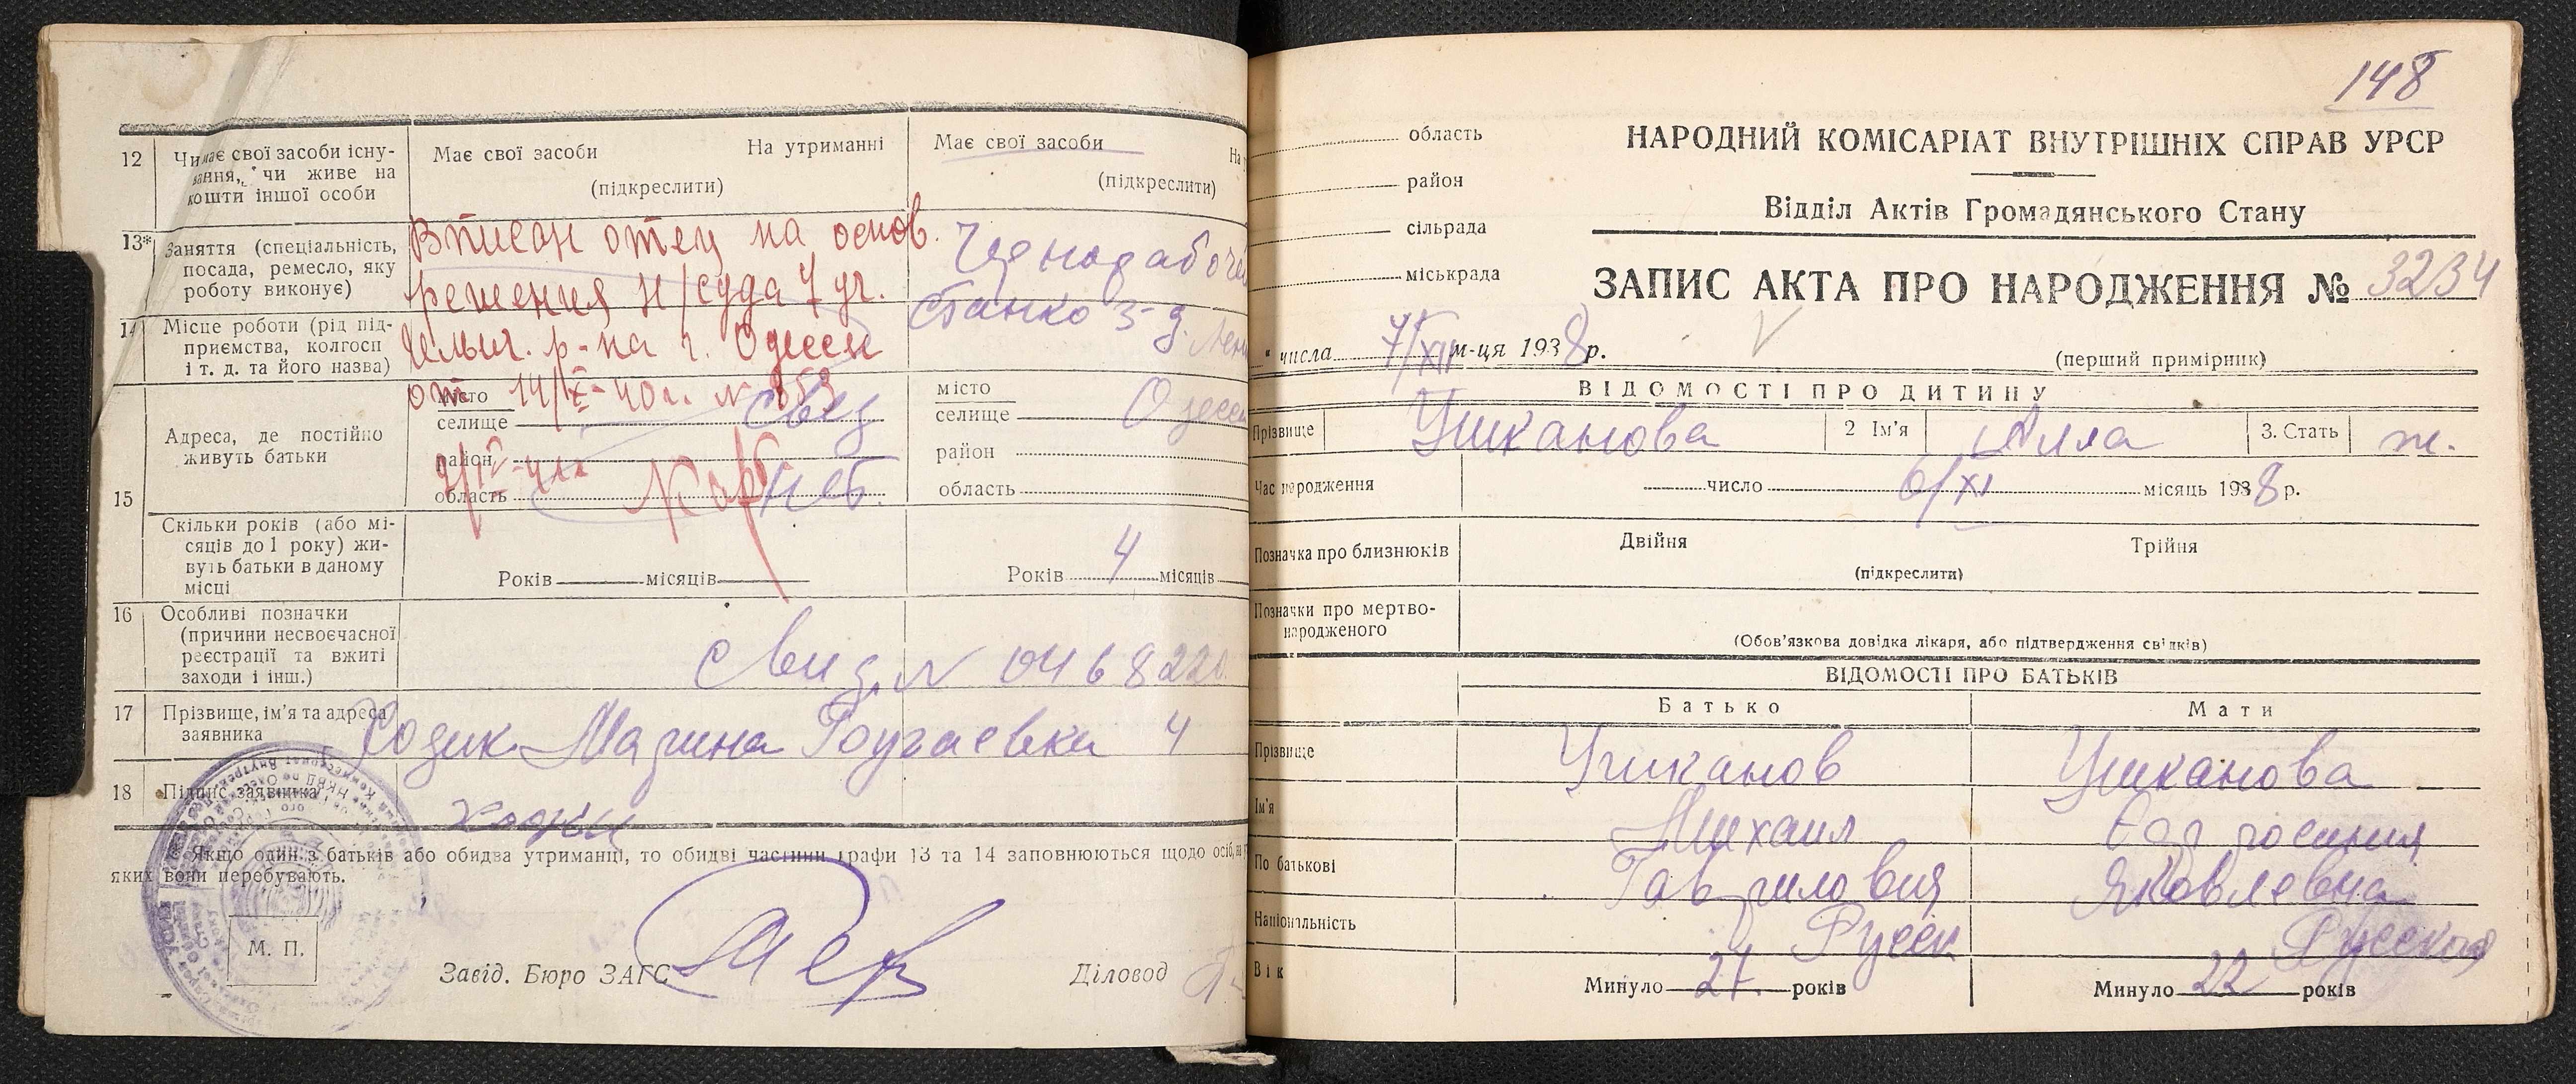 12 Чи має свої засоби існу-
вання, чи живе на
кошти іншої особи
Має свої засоби На утриманні
(підкреслити)
Має свої засоби
(підкреслити)
13* Заняття (спеціальність,
посада, ремесло, яку
роботу виконує)
Вписан отец на основ.
решения н/суда 7 уч.
Ильич. р-на г. Одессы
от 14/X-40г. №
Чернорабочей
14 Місце роботи (рід під-
приємства, колгосп
і т. д. та його назва)
Станко з-д. Лени
15 Адреса, де постійно
живуть батьки
місто
селище
район
область
місто
селище Одесса
район
область
Скільки років (або мі-
сяців до 1 року) жи-
вуть батьки в даному
місці
Років місяців
Років 4 місяців
16 Особливі позначки
(причини несвоєчасної
реєстрації та вжиті
заходи і інш.)
Свид. № 0468220
17 Прізвище, ім'я та адреса
заявника
Ходик Марина 4
18 Підпис заявника
Якщо один з батьків або обидва утриманці, то обидві частини графи 13 та 14 заповнюються щодо осіб, на
яких вони перебувають.
М. П.
Завід. Бюро ЗАГС
Діловод
148
область
район
сільрада
міськрада
НАРОДНИЙ КОМІСАРІАТ ВНУТРІШНІХ СПРАВ УРСР
Відділ Актів Громадянського Стану
ЗАПИС АКТА ПРО НАРОДЖЕННЯ № 3234
числа 7/XII м-ця 1938 р.
(перший примірник)
ВІДОМОСТІ ПРО ДИТИНУ
Прізвище Ушканова 2 Ім'я Алла 3. Стать ж.
Час народження число 6/XI місяць 1938 р.
Позначка про близнюків Двійня Трійня
(підкреслити)
Позначки про мертво-
народженого
(Обов'язкова довідка лікаря, або підтвердження свідків)
ВІДОМОСТІ ПРО БАТЬКІВ
Батько Мати
Прізвище Ушканов Ушканова
Ім'я Михаил
По батькові Гаврилович Яковлевна
Національність Русск Русская
Вік Минуло 27 років Минуло 22 років